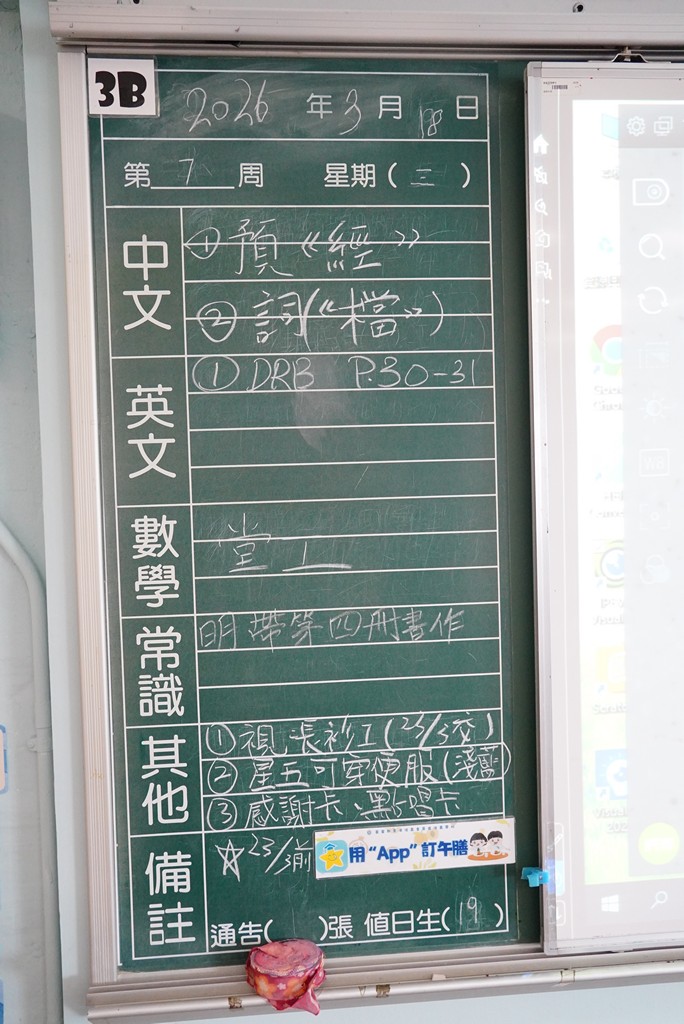 3B
2026 年 3 月 18 日
第 7 周 星期 ( 三 )
中文
① 預《經》
② 詞(《檔》)
英文
① DRB P.30-31
數學
堂工
常識
明帶第四冊書作
其他
① 視:長衫工(23/3交)
② 星五可穿便服(淺藍)
③ 感謝卡、點唱卡
備註
☆23/3前
用 “App” 訂午膳
通告( )張 值日生( 19 )